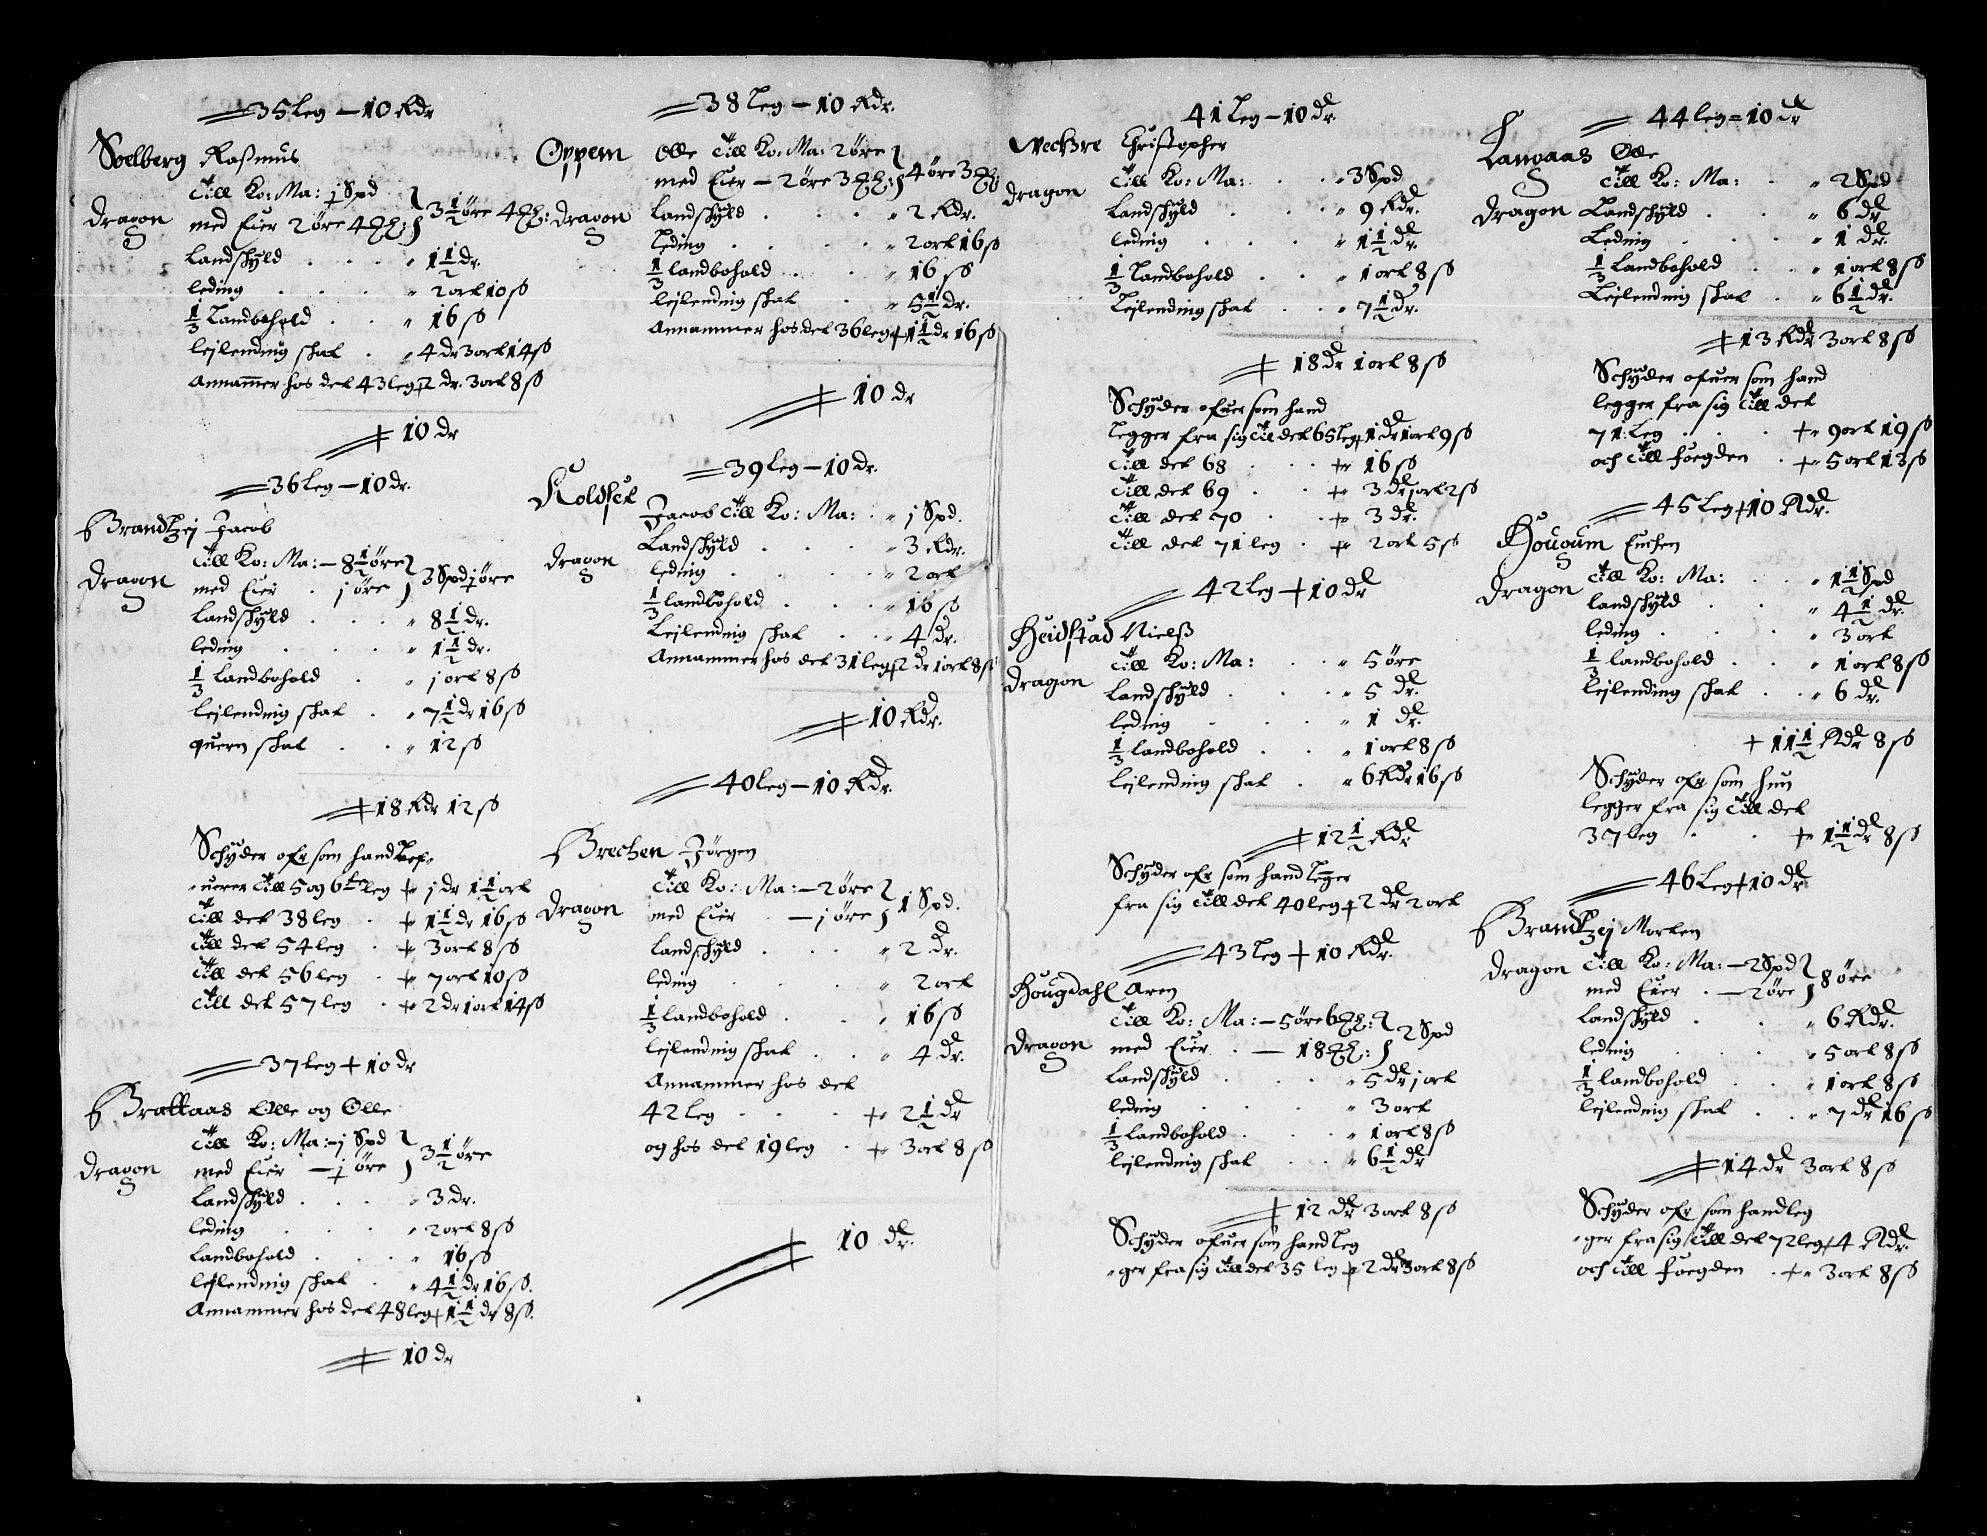 35 leg — 10 Rdr
Soelberg Rasmus
Dragon
till Ko: Ma: j Spd
med Eier 2 øre 4 } 3½ øre 4
Landschyld . . . " 1½ dr.
leding . . . " 2 ort 10 sß
⅓ Landbohold . . " 16 sß
lejlending skat . " 4 dr 3 ort 14 sß
Annammer hos det 43 leg + 2 dr. 3 ort 8 sß
+ 10 dr
36 leg — 10 dr.
Brandtzej Jacob
Dragon
till Ko: Ma: — 8½ øre
med Eier . j øre } 3 Spd j øre
Landschyld . . . " 8½ dr.
leding . . . " 1½ dr.
⅓ Landbohold . . " j ort 8 sß
lejlending skat . " 7½ dr 16 sß
quern skat . . " 12 sß
+ 18 Rdr 12 sß
Schyder ofr som hand lef-
uerer till 5 og 6te leg + j dr 1½ ort
till det 38 leg . + 1½ dr 16 sß
till det 54 leg . + 3 ort 8 sß
till det 56 leg . + 7 ort 10 sß
till det 57 leg . + 2 dr 1 ort 14 sß
37 leg + 10 dr
Brattaas Olle og Olle
Dragon
till Ko: Ma: — j Spd
med Eier — j øre } 3½ øre
Landschyld . . . " 3 dr.
leding . . . " 2 ort 8 sß
Landbohold . . . " 16 sß
lejlending skat . " 4½ dr 16 sß.
Annammer hos det 48 leg + 1½ dr 8 sß.
+ 10 dr
38 leg — 10 Rdr.
Oppem
Dragon
Olle till Ko: Ma: 2 øre
med Eier — 2 øre 3 } 4 øre 3
Landschyld . . . " 2 Rdr.
leding . . . " 2 ort 16 sß
⅓ landbohold . . " 16 sß
lejlending skat . " 5½ dr.
Annammer hos det 36 leg + 1½ dr 16 sß
+ 10 dr
39 leg — 10 dr.
Koldset
Dragon
Jacob till Ko: Ma: . " j Spd.
Landschyld . . . " 3 Rdr.
leding . . . " 2 ort
⅓ landbohold . . " 16 sß
Lejlending skat . " 4 dr.
Annammer hos det 31 leg + 2 dr 1 ort 8 sß
+ 10 Rdr.
40 leg — 10 Rdr.
Brechen Jørgen
Dragon
till Ko: Ma: — 2 øre
med Eier . — j øre } 1 Spd.
Landschyld . . . " 2 dr.
leding . . . " 2 ort
⅓ landbohold . . " 16 sß
lejlending skat . " 4 dr.
Annammer hos det
42 leg . . . + 2½ dr
og hos det 19 leg . + 3 ort 8 sß
+ 10 dr.
41 leg — 10 dr.
Christopher
Dragon
till Ko: Ma: . . " 3 Spd
Landschyld . . . " 9 Rdr.
leding . . . " 1½ dr.
⅓ Landbohold . . " 1 ort 8 sß
Lejlending skat . " 7½ dr.
+ 18 dr 1 ort 8 sß
Schyder ofuer som hand
legger fra sig till det 65 leg + 1 dr 1 ort 9 sß
till det 68 . . + 16 sß
till det 69 . . + 3 dr j ort 2 sß
till det 70 . . + 3 dr.
till det 71 leg . + 2 ort 5 sß
42 leg + 10 dr
Heidstad Nielß
Dragon
till Ko: Ma: . . " 5 øre
Landschyld . . . " 5 dr.
leding . . . " 1 dr.
⅓ landbohold . . " 1 ort 8 sß
lejlending skat . " 6 Rdr 16 sß
+ 12½ Rdr
Schyder ofr som hand leger
fra sig till det 40 leg + 2 dr 2 ort
43 leg + 10 Rdr.
Hougdahl Aren
Dragon
till Ko: Ma: — 5 øre 6
med Eier . — 18 } 2 Spd
Landschyld . . . " 5 dr j ort
leding . . . " 3 ort
⅓ landbohold . . " 1 ort 8 sß
lejlending skat . " 6½ dr
+ 12 dr 3 ort 8 sß
Schyder ofuer som hand leg
"ger fra sig till det 35 leg + 2 dr 3 ort 8 sß
44 leg = 10 dr
Langaas Olle
Dragon
till Ko: Ma: . . " 2 Spd
Landschyld . . . " 6 dr
Leding . . . " 1 dr.
⅓ Landbohold . . " 1 ort 8 sß
Lejlending skat . " 6½ dr.
+ 13 Rdr 3 ort 8 sß
Schyder ofuer som hand
legger fra sig till det
71 leg . . . + 9 ort 19 sß
och till foegden . + 5 ort 13 sß
45 leg + 10 Rdr.
Hougum Enchen
Dragon
till Ko: Ma: . . " 1½ Spd
landschyld . . . " 4½ dr.
leding . . . " 3 ort
⅓ landbohold . . " 1 ort 8 sß
lejlending skat . . " 6 dr.
+ 11½ Rdr 8 sß
Schyder ofr som hun
legger fra sig till det
37 leg . . . + 1½ dr 8 sß
46 leg + 10 dr
Brandtzej Morten
Dragon
till Ko: Ma: — 2 Spd
med Eier . — 2 øre } 8 øre
Landschyld . . . " 6 Rdr.
leding . . . " 5 ort 8 sß
⅓ landbohold . . " 1 ort 8 sß
lejlending skat . . " 7 dr 16 sß
+ 14 dr 3 ort 8 sß
Schyder ofr som hand leg
"ger fra sig till det 72 leg + 4 Rdr.
och till foegden . + 3 ort 8 sß